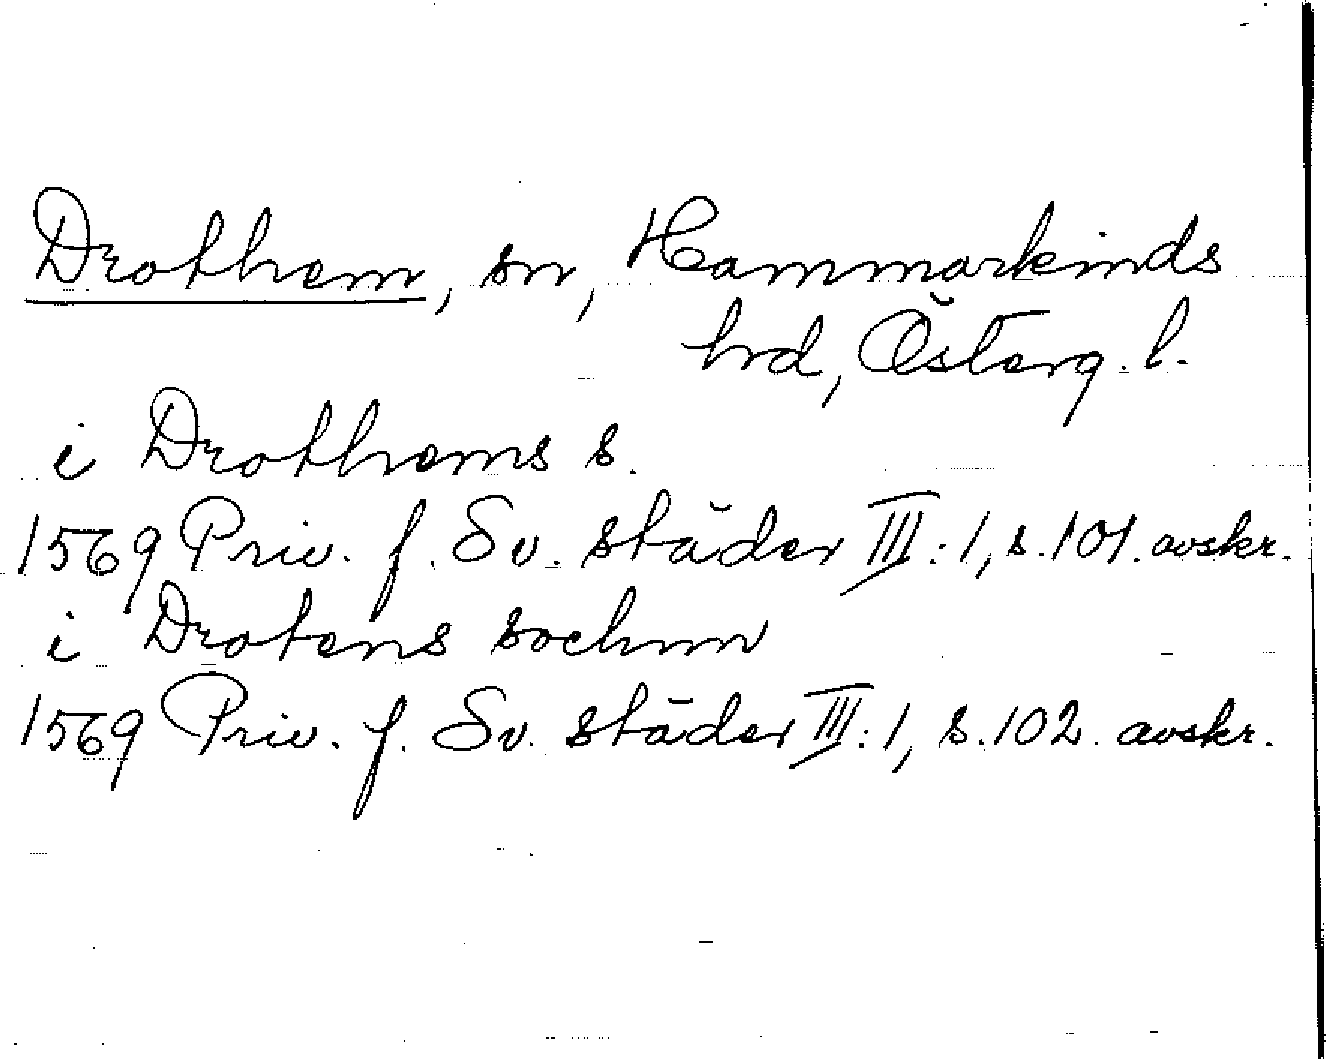 Drothem, sn, Hammarkinds
hrd, Österg. l.
i Drothems s.
1569 Priv. f. Sv. städer III: 1, s. 101. avskr.
i Drotens sochnn
1569 Priv. f. Sv. städer III: 1, s. 102. avskr.